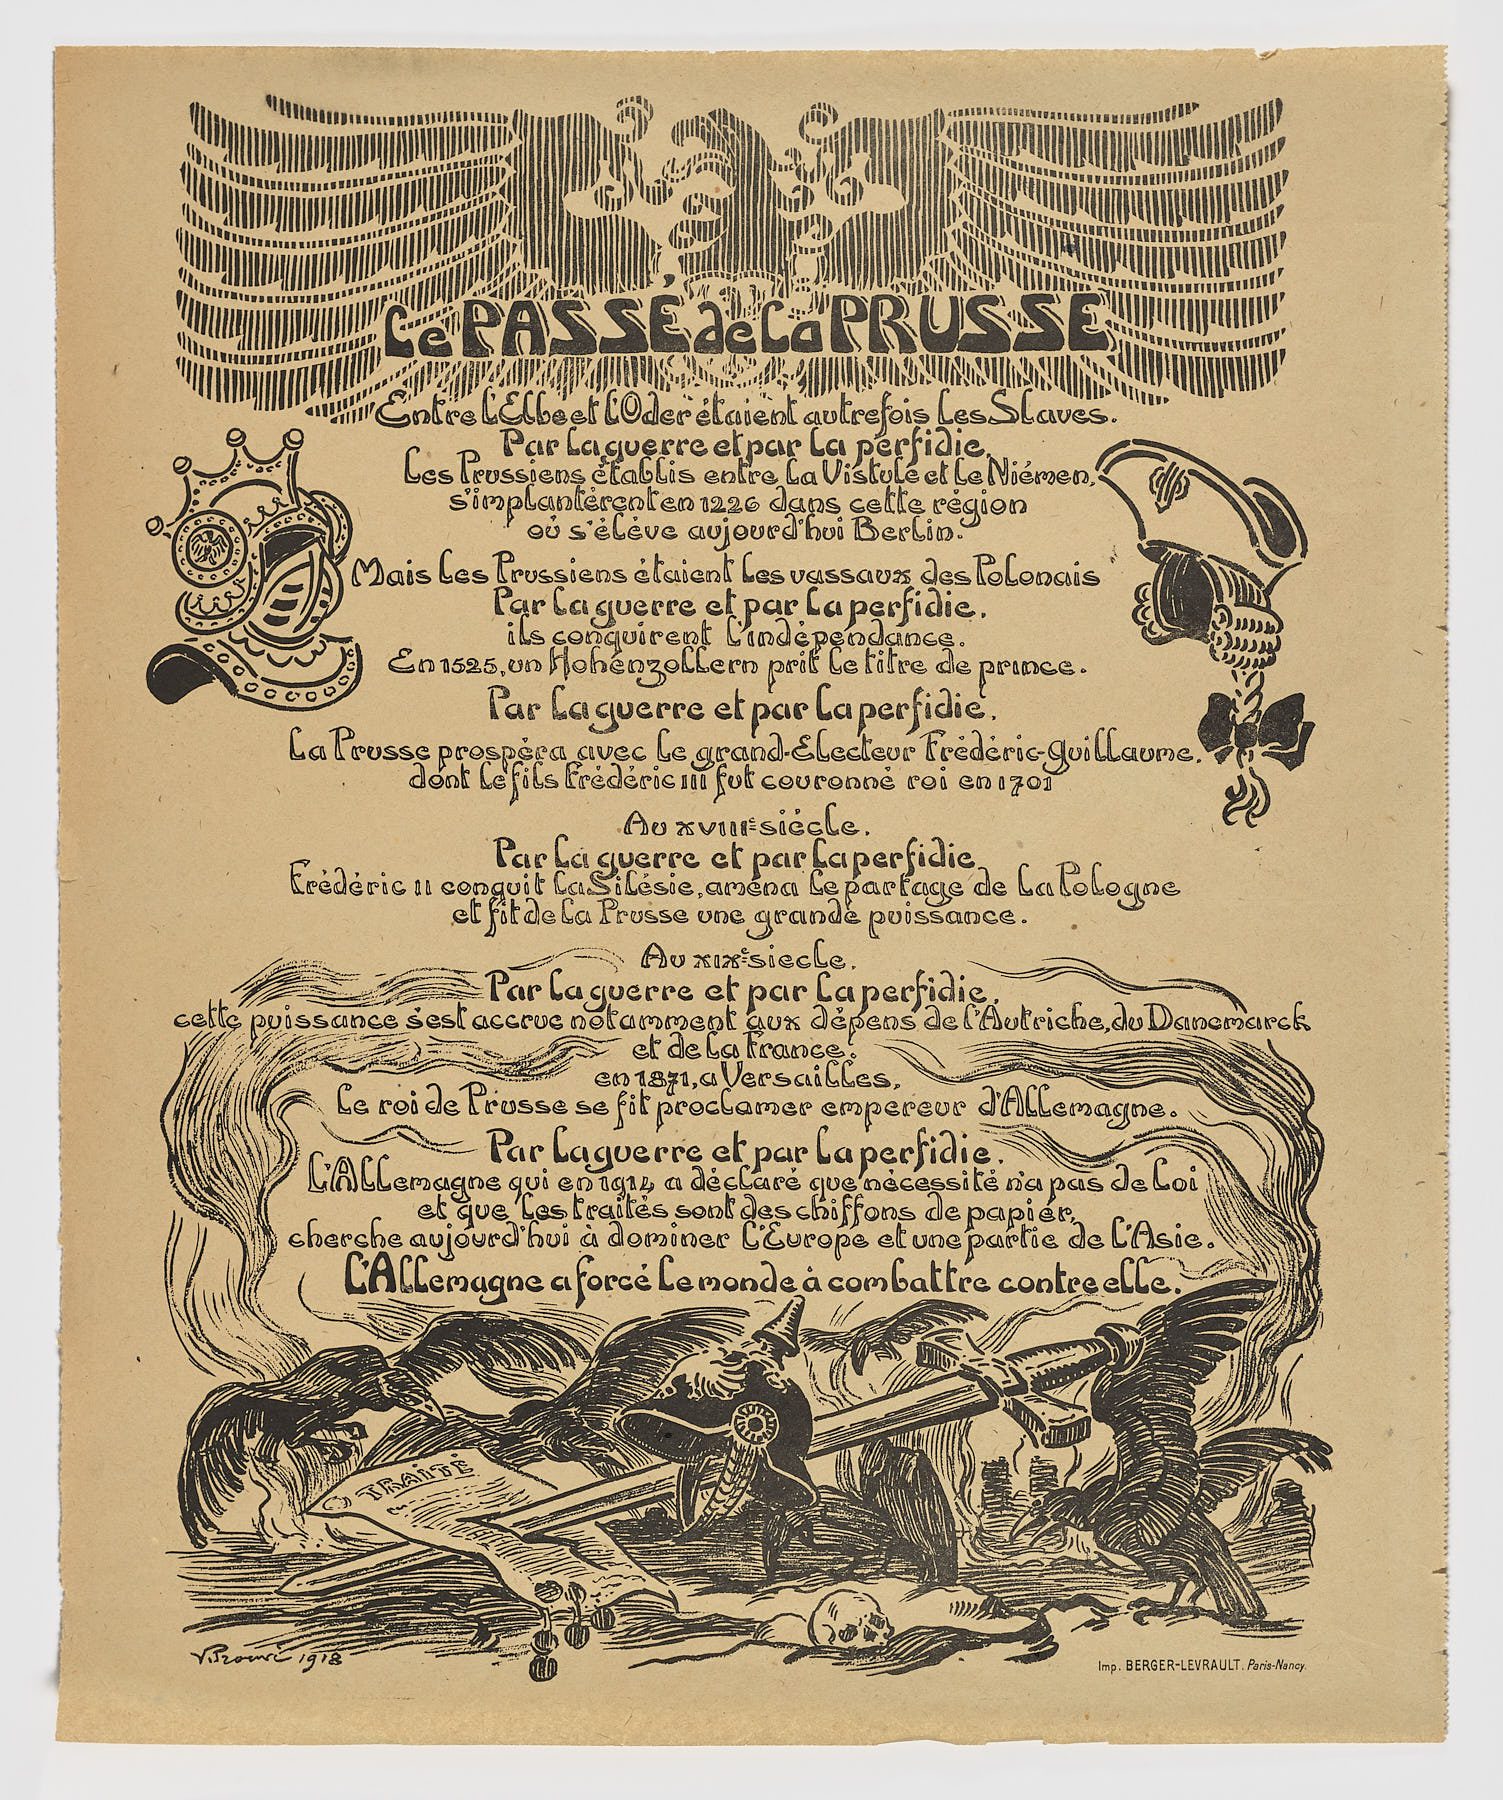 Le PASSÉ de La PRUSSE
Entre l'Elbe et l'Oder étaient autrefois les Slaves.
Par la guerre et par la perfidie,
Les Prussiens établis entre la Vistule et le Niémen,
s'implantèrent en 1226 dans cette région
où s'élève aujourd'hui Berlin.
Mais les Prussiens étaient les vassaux des Polonais
Par la guerre et par la perfidie,
ils conquirent l'indépendance.
En 1525, un Hohenzollern prit le titre de prince.
Par la guerre et par la perfidie,
La Prusse prospéra avec le grand-Electeur Frédéric-Guillaume,
dont le fils Frédéric III fut couronné roi en 1701
Au XVIIIe siècle,
Par la guerre et par la perfidie
Frédéric II conquit la Silésie, amena le partage de la Pologne
et fit de la Prusse une grande puissance.
Au XIXe siecle,
Par la guerre et par la perfidie,
cette puissance s'est accrue notamment aux dépens de l'Autriche, du Danemarck
et de la France.
en 1871, a Versailles,
Le roi de Prusse se fit proclamer empereur d'Allemagne.
Par la guerre et par la perfidie,
L'Allemagne qui en 1914 a déclaré que nécessité n'a pas de loi
et que les traités sont des chiffons de papier,
cherche aujourd'hui à dominer l'Europe et une partie de l'Asie.
L'Allemagne a forcé le monde à combattre contre elle.
TRAITÉ
V. Prouvé 1918
Imp. BERGER-LEVRAULT. Paris-Nancy.